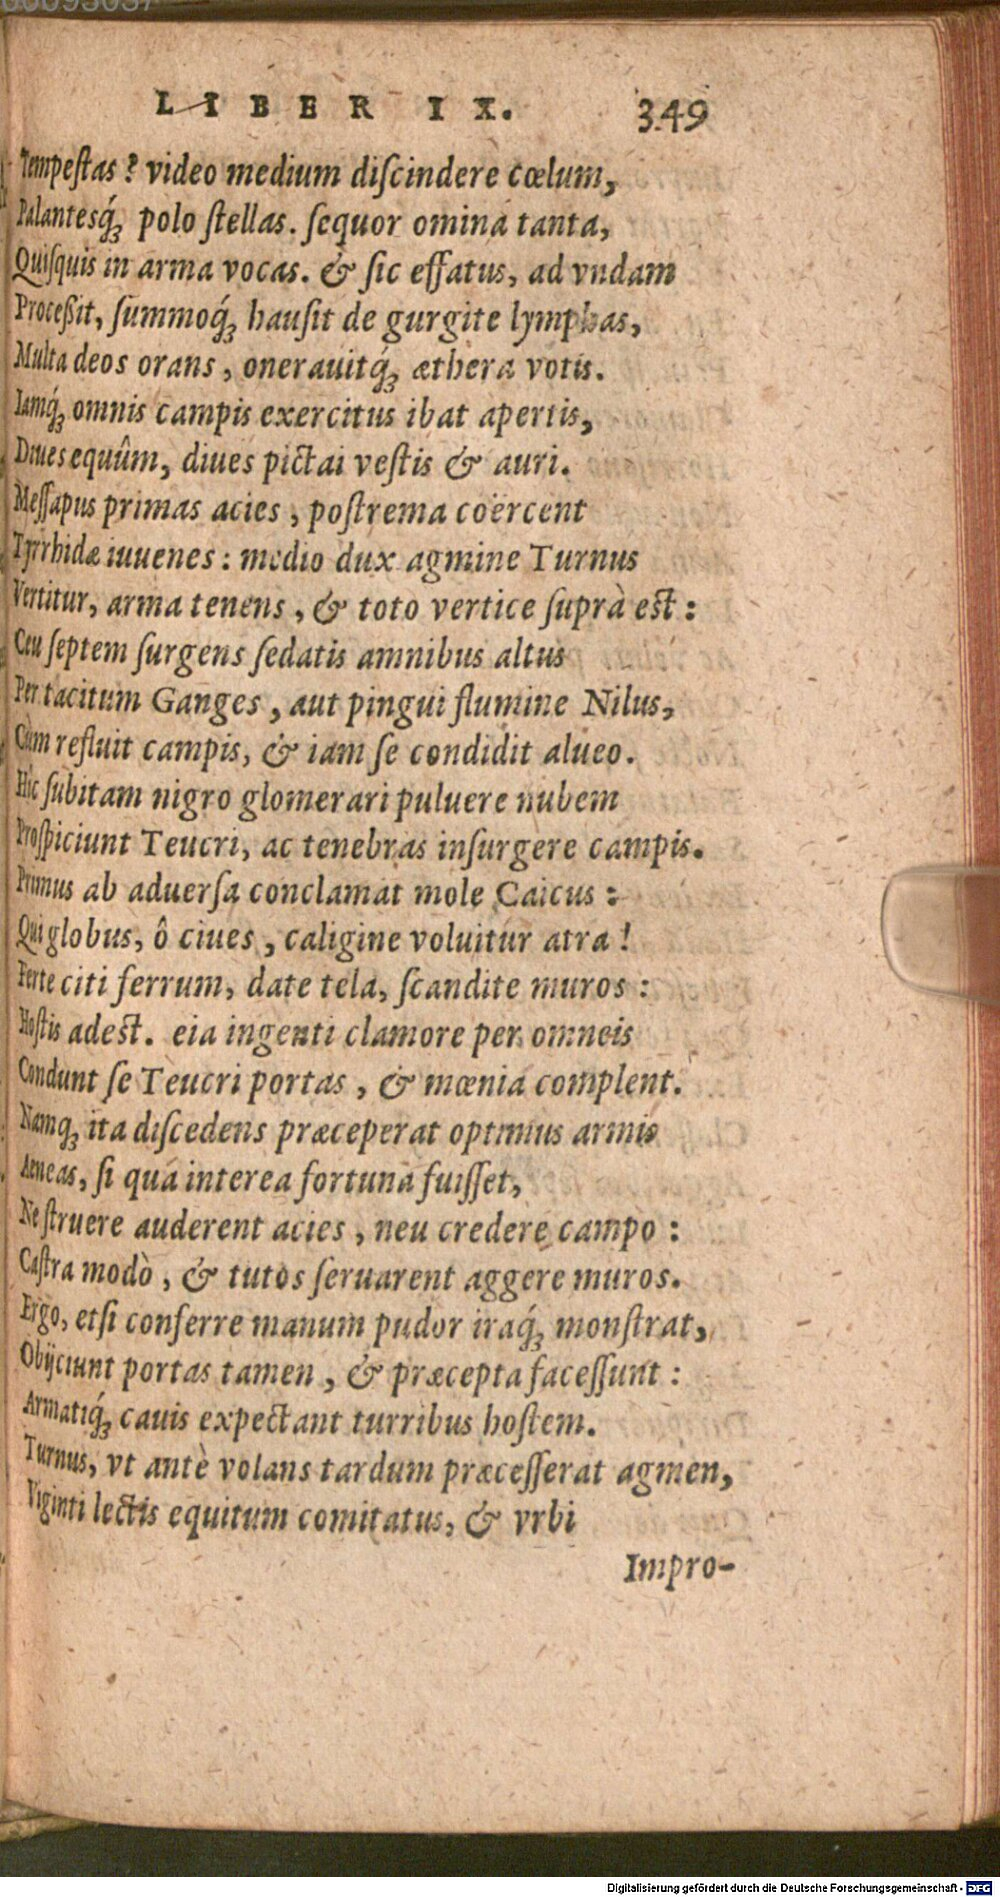 LIBER IX. 349
Tempeſtas? video medium diſcindere cœlum,
Palantesq́; polo ſtellas. ſequor omina tanta,
Quiſquis in arma vocas. & ſic effatus, ad vndam
Proceßit, ſummoq́; hauſit de gurgite lymphas,
Multa deos orans, onerauitq́; æthera votis.
Iamq́; omnis campis exercitus ibat apertis,
Diues equûm, diues pictai veſtis & auri.
Meſſapus primas acies, poſtrema coërcent
Tyrrhidæ iuuenes: medio dux agmine Turnus
Vertitur, arma tenens, & toto vertice ſuprà est:
Ceu ſeptem ſurgens ſedatis amnibus altus
Per tacitum Ganges, aut pingui flumine Nilus,
Cùm refluit campis, & iam ſe condidit alueo.
Hîc ſubitam nigro glomerari puluere nubem
Proſpiciunt Teucri, ac tenebras inſurgere campis.
Primus ab aduerſa conclamat mole Caicus:
Qui globus, ô ciues, caligine voluitur atra!
Ferte citi ferrum, date tela, ſcandite muros:
Hoſtis adest. eia ingenti clamore per omneis
Condunt ſe Teucri portas, & mœnia complent.
Namq; ita diſcedens præceperat optimus armis
Aeneas, ſi qua interea fortuna fuiſſet,
Ne ſtruere auderent acies, neu credere campo:
Caſtra modò, & tutos ſeruarent aggere muros.
Ergo, etſi conferre manum pudor iraq́; monſtrat,
Obijciunt portas tamen, & præcepta faceſſunt:
Armatiq́; cauis expectant turribus hoſtem.
Turnus, vt antè volans tardum præceſſerat agmen,
Viginti lectis equitum comitatus, & vrbi
Impro-
Digitalisierung gefördert durch die Deutsche Forschungsgemeinschaft - DFG